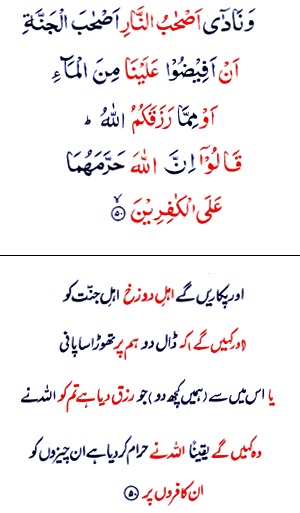 وَنَادٰٓى اَصْحٰبُ النَّارِ اَصْحٰبَ الْجَنَّةِ
اَنْ اَفِيْضُوْا عَلَيْنَا مِنَ الْمَآءِ
اَوْ مِمَّا رَزَقَكُمُ اللّٰهُ ؕ
قَالُوْٓا اِنَّ اللّٰهَ حَرَّمَهُمَا
عَلَى الْكٰفِرِيْنَ ۙ﴿۵۰﴾
اور پکاریں گے اہلِ دوزخ اہلِ جنّت کو
(اور کہیں گے) کہ ڈال دو ہم پر تھوڑا سا پانی
یا اس میں سے (ہمیں کچھ دو) جو رزق دیا ہے تم کو اللہ نے
وہ کہیں گے یقیناً اللہ نے حرام کر دیا ہے ان چیزوں کو
ان کافروں پر ﴿۵۰﴾